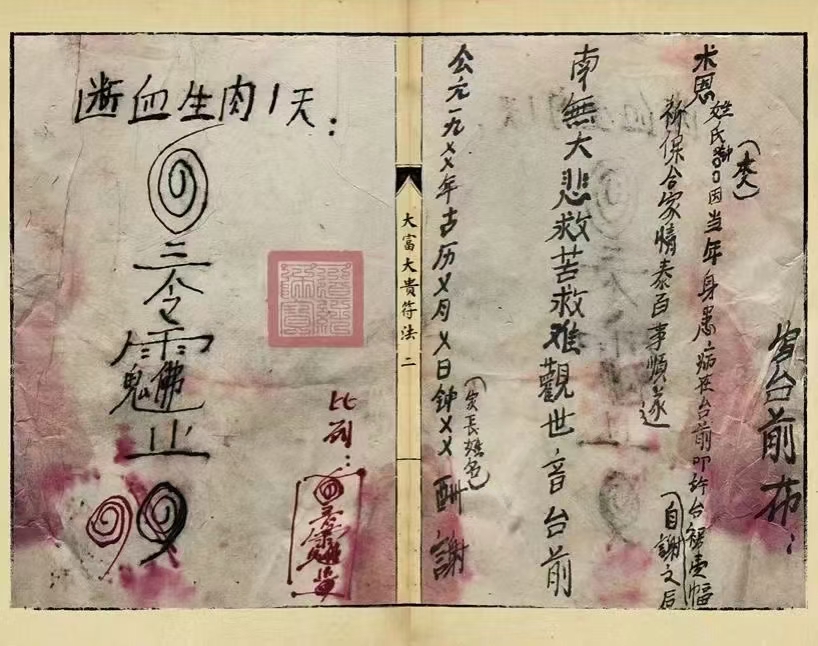 台前布：
求恩姓氏因当年身患病在台前叩許台裙壹幅
祈保合家情泰百事順遂
（自謝文后
南無大悲救苦救难觀世音台前
公元一九××年古历×月×日钟×× 酬謝
（家長姓名）
大富大貴符法 二
断血生肉1天：
三令
止
比列：